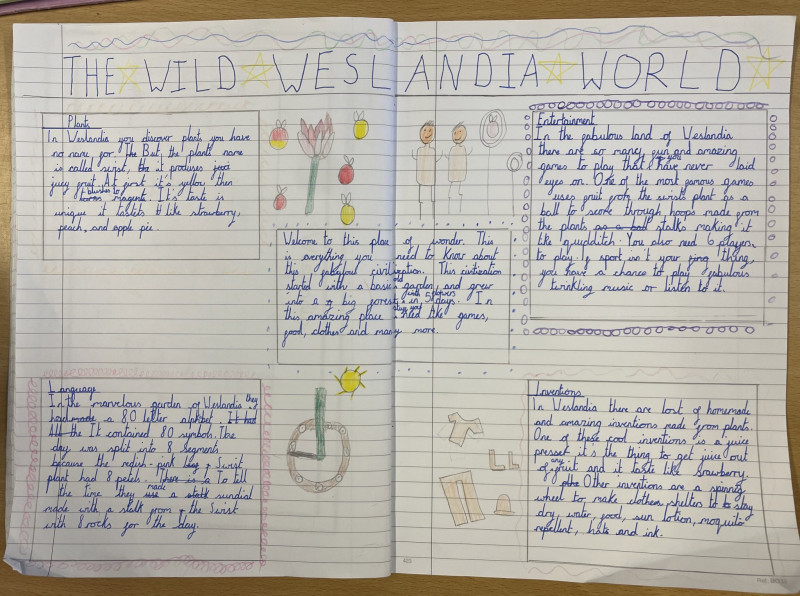 THE WILD WESLANDIA WORLD
Plants
In Weslandia you discover plants you have
no name for. The But the plants name
is called swist, the it produces juci
juicy fruit. At first it's yellow then
blushes to
turns magenta. It's taste is
unique it tastets # like strawberry,
peach, and apple pie.
Welcome to this place of wonder. This
is everything you need to know about
this fabeylous civilization. This civilization
started with a basic garden, and grew
old
into a big forrest in 5 days. In
with flowers
this amazing place need like games,
stuff you
food, clothes and many more.
Entertainment
In the fabulous land of Weslandia
there are so many fun and amazing
games to play that have never laid
you
eyes on. One of the most famous games
uses fruit from the swist's plant as a
ball to score through hoops made from
the plants as a ball stalks making it
like quidditch. You also need 6 players
to play. If sport isn't your jing thing,
you have a chance to play fabulous
twinkling music or listen to it.
Language
In the marvelous garden of Weslandia they
had made a 80 letter alphbet it had
the It contained 80 symbols. The
day was split into 8 segments
because the redish-pink Swist
plant had 8 petels. There is a To tell
the time they use a stalk sundial
made
made with a stalk from the Swist
with 8 rocks for the day.
Inventions
In Weslandia there are lost of homemade
and amazing inventions made from plants.
One of these cool inventions is a juice
presset it's the thing to get juice out
any
of fruit and it taste like Srawberry.
Other inventions are a spining
wheel to make clothes, shelter to stay
dry, water, food, sun lotion, moquito
repellent, hats and ink.